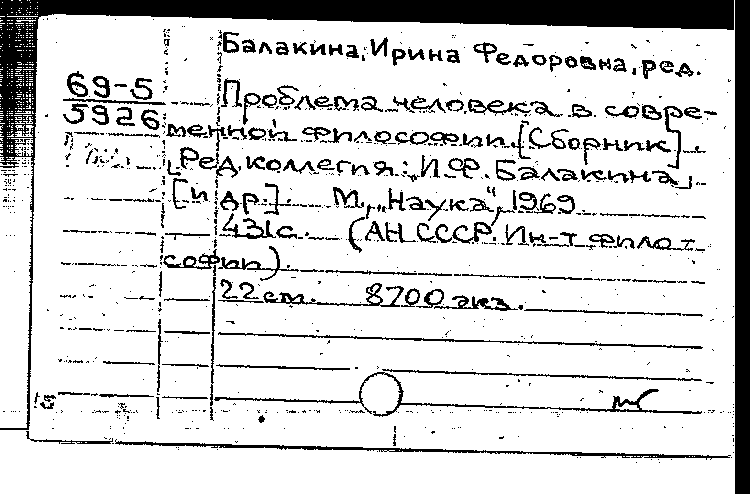 Балакина, Ирина Федоровна, ред.
69-5
5926
Проблема человека в совре-
менной философии. [Сборник].
[Ред. коллегия: И.Ф. Балакина
[и др.]. М., „Наука", 1969
431с. (АН СССР. Ин-т фило-
софии).
22 см. 8700 экз.